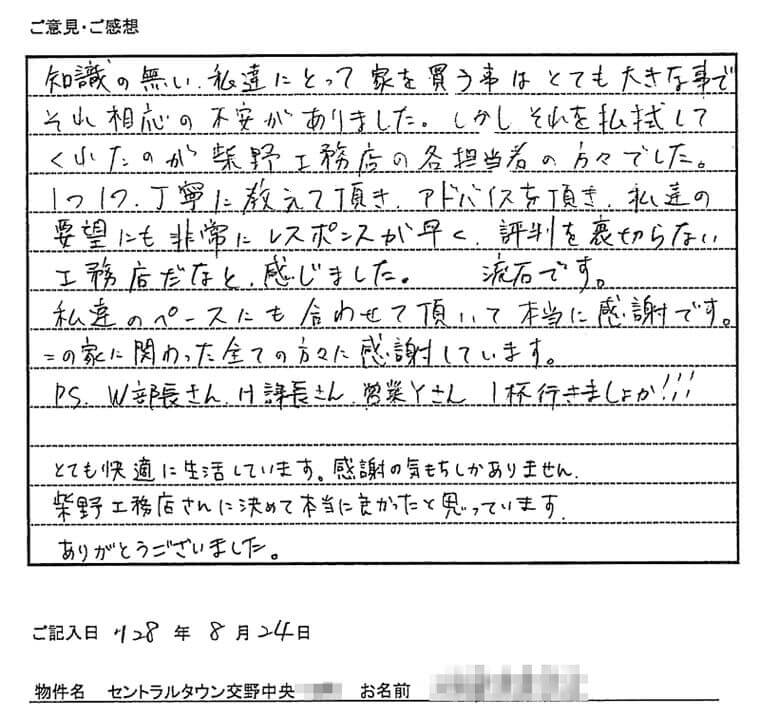 ご意見・ご感想
知識の無い、私達にとって家を買う事はとても大きな事で
それ相応の不安がありました。しかしそれを払拭して
くれたのが柴野工務店の各担当者の方々でした。
1つ1つ、丁寧に教えて頂き、アドバイスを頂き、私達の
要望にも非常にレスポンスが早く、評判を裏切らない
工務店だなと、感じました。 流石です。
私達のペースにも合わせて頂いて本当に感謝です。
この家に関わった全ての方々に感謝しています。
PS. W部長さん、H課長さん、営業Yさん 1杯行きましょか!!!
とても快適に生活しています。感謝の気もちしかありません。
柴野工務店さんに決めて本当に良かったと思っています。
ありがとうございました。
ご記入日 H28 年 8 月 24 日
物件名 セントラルタウン交野中央 お名前